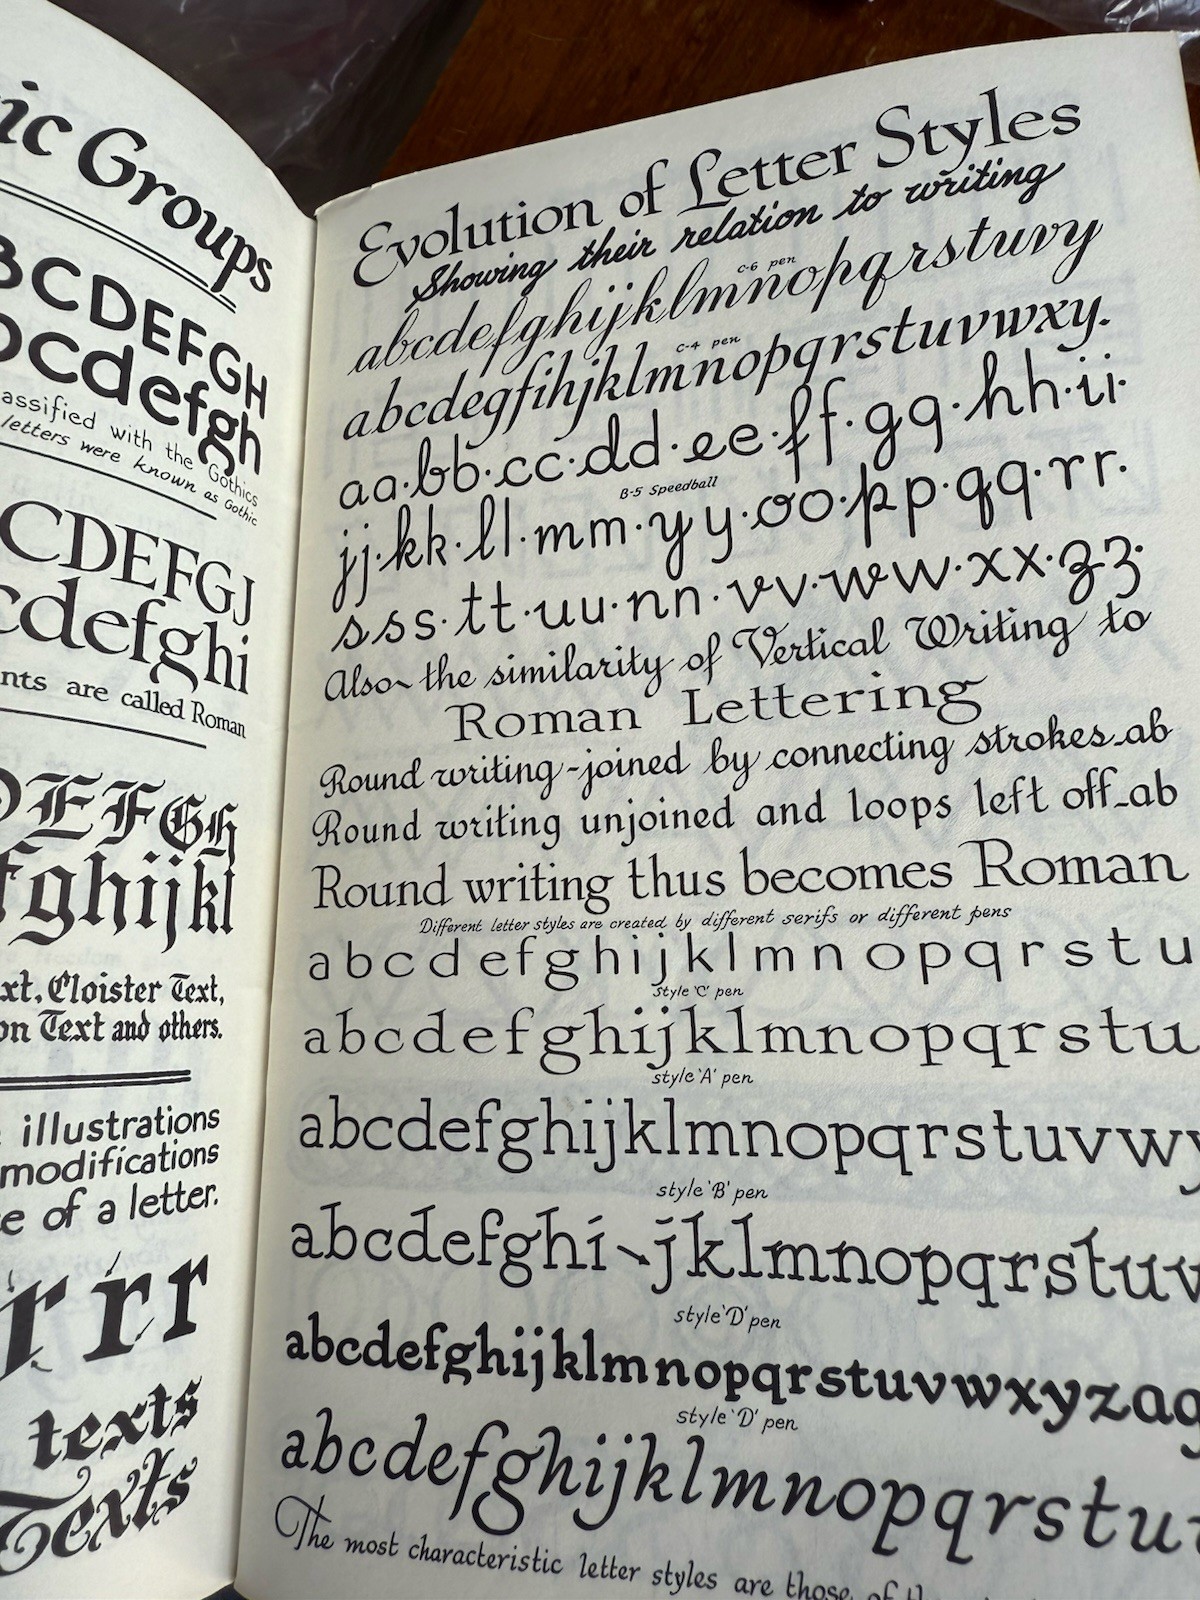 ic Groups
BCDEFGH
bcdefgh
assified with the Gothics
letters were known as Gothic
CDEFGJ
cdefghi
nts are called Roman
DEFGH
fghijkl
xt, Cloister Text,
on Text and others.
illustrations
modifications
e of a letter.
r r r
texts
Texts
Evolution of Letter Styles
Showing their relation to writing
c-6 pen
abcdefghijklmnopqrstuvy
c-4 pen
abcdegfihjklmnopqrstuvwxy.
aa·bb·cc·dd·ee·ff·gg·hh·ii·
B-5 Speedball
jj·kk·ll·mm·yy·oo·pp·qq·rr.
sss·tt·uu·nn·vv·ww·xx·zz·
Also~the similarity of Vertical Writing to
Roman Lettering
Round writing-joined by connecting strokes-ab
Round writing unjoined and loops left off-ab
Round writing thus becomes Roman
Different letter styles are created by different serifs or different pens
abcdefghijklmnopqrstu
style 'C' pen
abcdefghijklmnopqrstu
style 'A' pen
abcdefghijklmnopqrstuvwy
style 'B' pen
abcdefghi jklmnopqrstuv
style 'D' pen
abcdefghijklmnopqrstuvwxyzag
style 'D' pen
abcdefghijklmnopqrstu
The most characteristic letter styles are those of